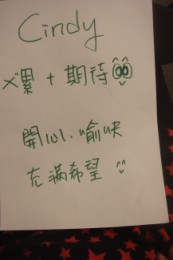 Cindy
累 + 期待
開心．愉快
充滿希望